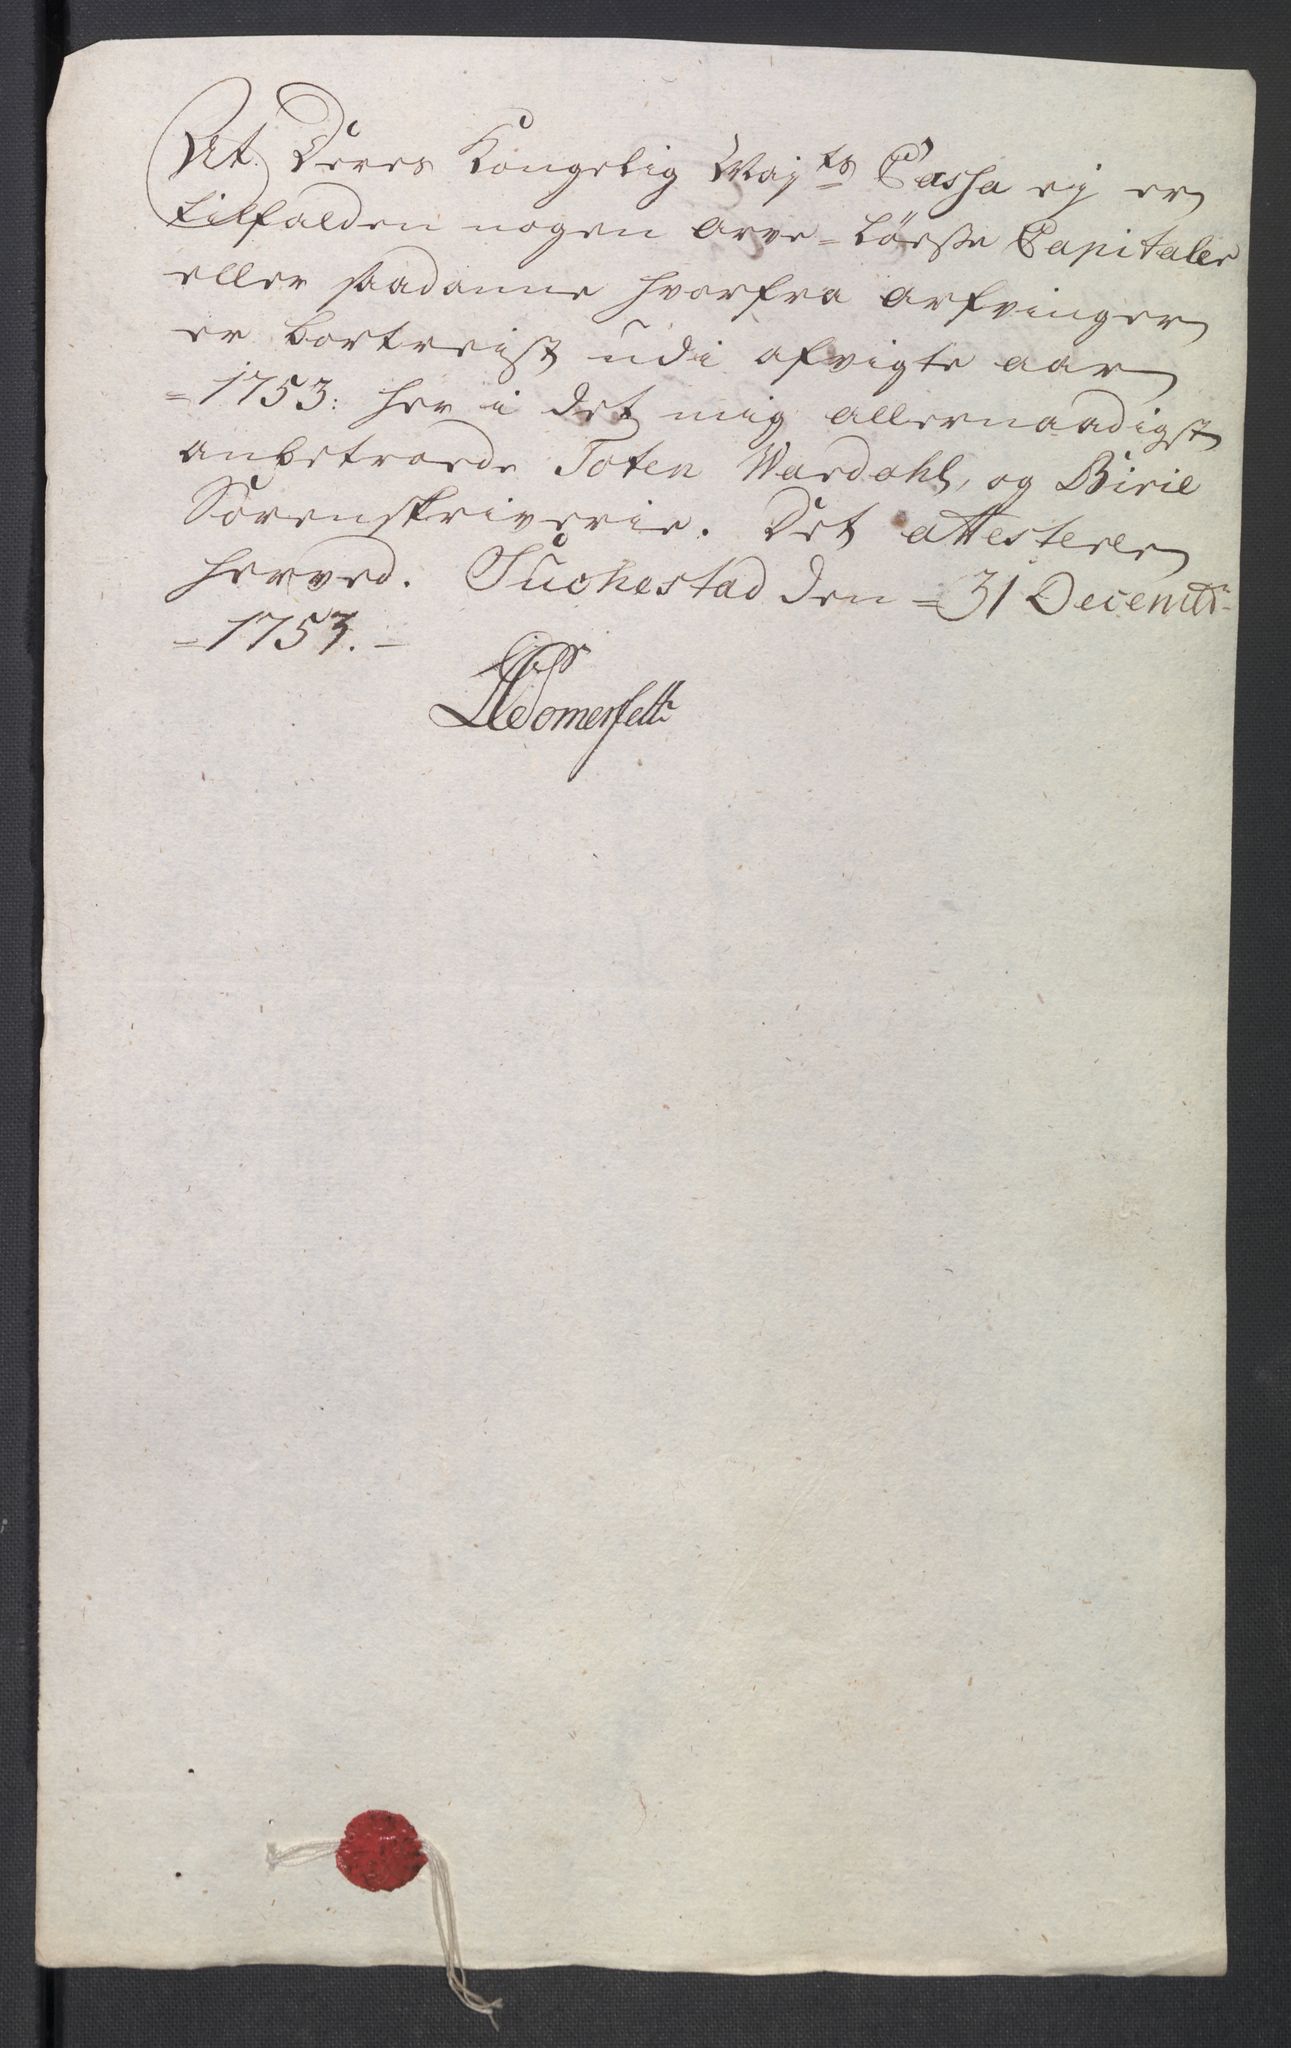 At Deres Kongelig May<sup>ts</sup> Cassa ej er
tilfalden nogen arve=löesse Capitaler
eller saadanne hvorfra arfvinger
er bortreist udi afvigte aar
=1753: her i det mig allernaadigst
anbetroede Toten Wardahl, og Birie
Sorenskriverie. Det attesterer
herved. Suchestad den =31 Decembr=
=1753.=
Somerfelt